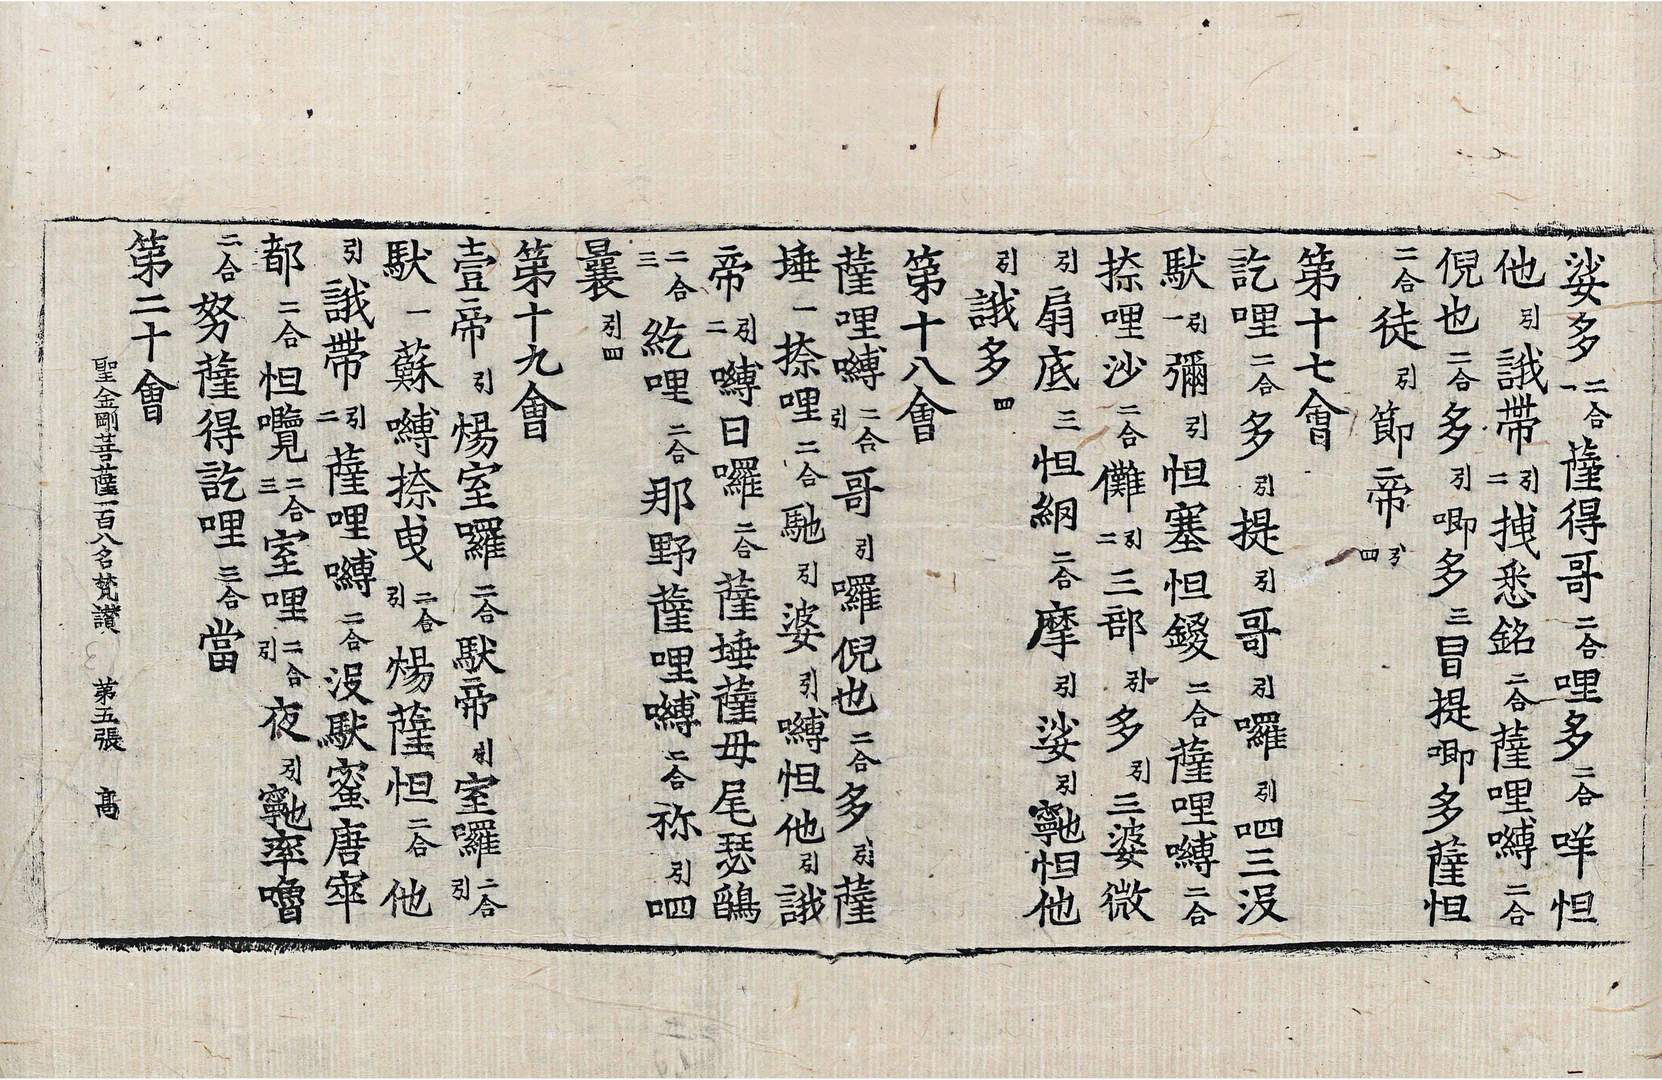 娑多二合一薩得哥二合哩多二合咩怛
他引誐帶引二拽悉銘二合薩哩嚩二合
倪也二合多引唧多三冒提唧多薩怛
二合徒引節帝引四
第十七會
訖哩二合多引提引哥引囉引呬三沒
馱引一彌引怛塞怛鑁二合薩哩嚩二合
捺哩沙二合儺引二三部引多引三婆微
引扇底三怛網二合摩引娑引寧也怛他
引誐多四
第十八會
薩哩嚩二合引哥引囉倪也二合多引薩
埵一捺哩二合馳引婆引嚩怛他引誐
帝引二嚩日囉二合薩埵薩毋尾瑟鵮
二合三紇哩二合那野薩哩嚩二合祢引呬
曩引四
第十九會
壹帝引煬室囉二合馱帝引室囉二合引
馱一蘇嚩捺曳二合引煬薩怛二合他
引誐帶引二薩哩嚩二合沒馱蜜唐寧
都二合怛囕二合三室哩二合引夜引寧也率嚕
二合努薩得訖哩三合當
第二十會
聖金剛菩薩一百八名梵讃 第五張 髙